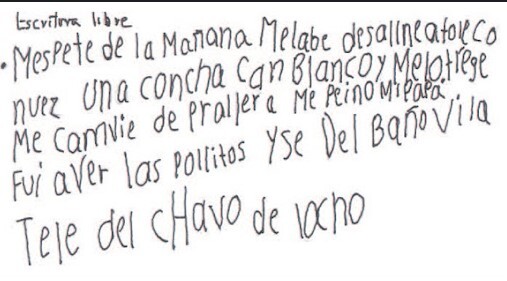 Escritura libre
• Mespete de la Mañana Melabe desallneatole Co
nuez una concha Can Blanco y Melotrege
Me camvie de prallera Me Peino Mi Papá
Fui aver las pollitos yse Del Baño Vi la
Tele del cHavo de locho